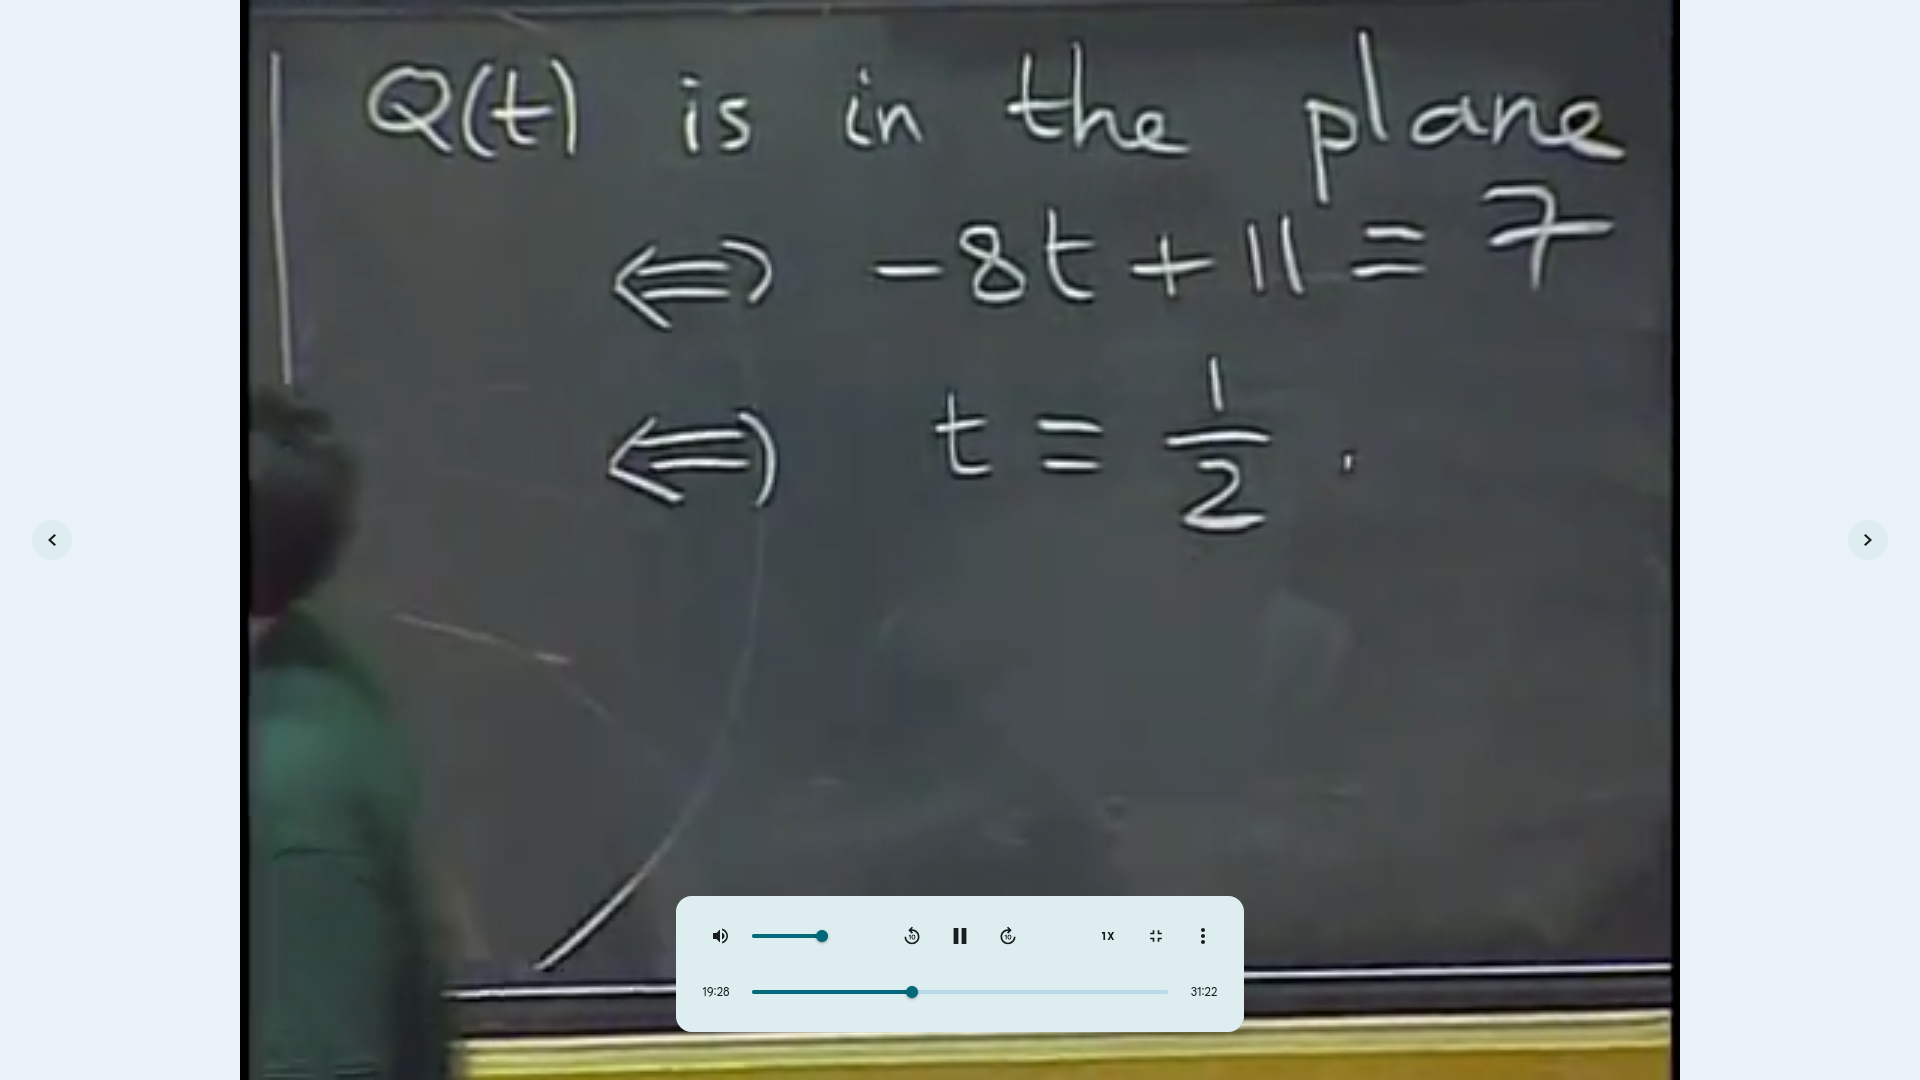 Q(t) is in the plane
⇔ -8t + 11 = 7
⇔ t = 1/2 .
10
10
1X
19:28
31:22